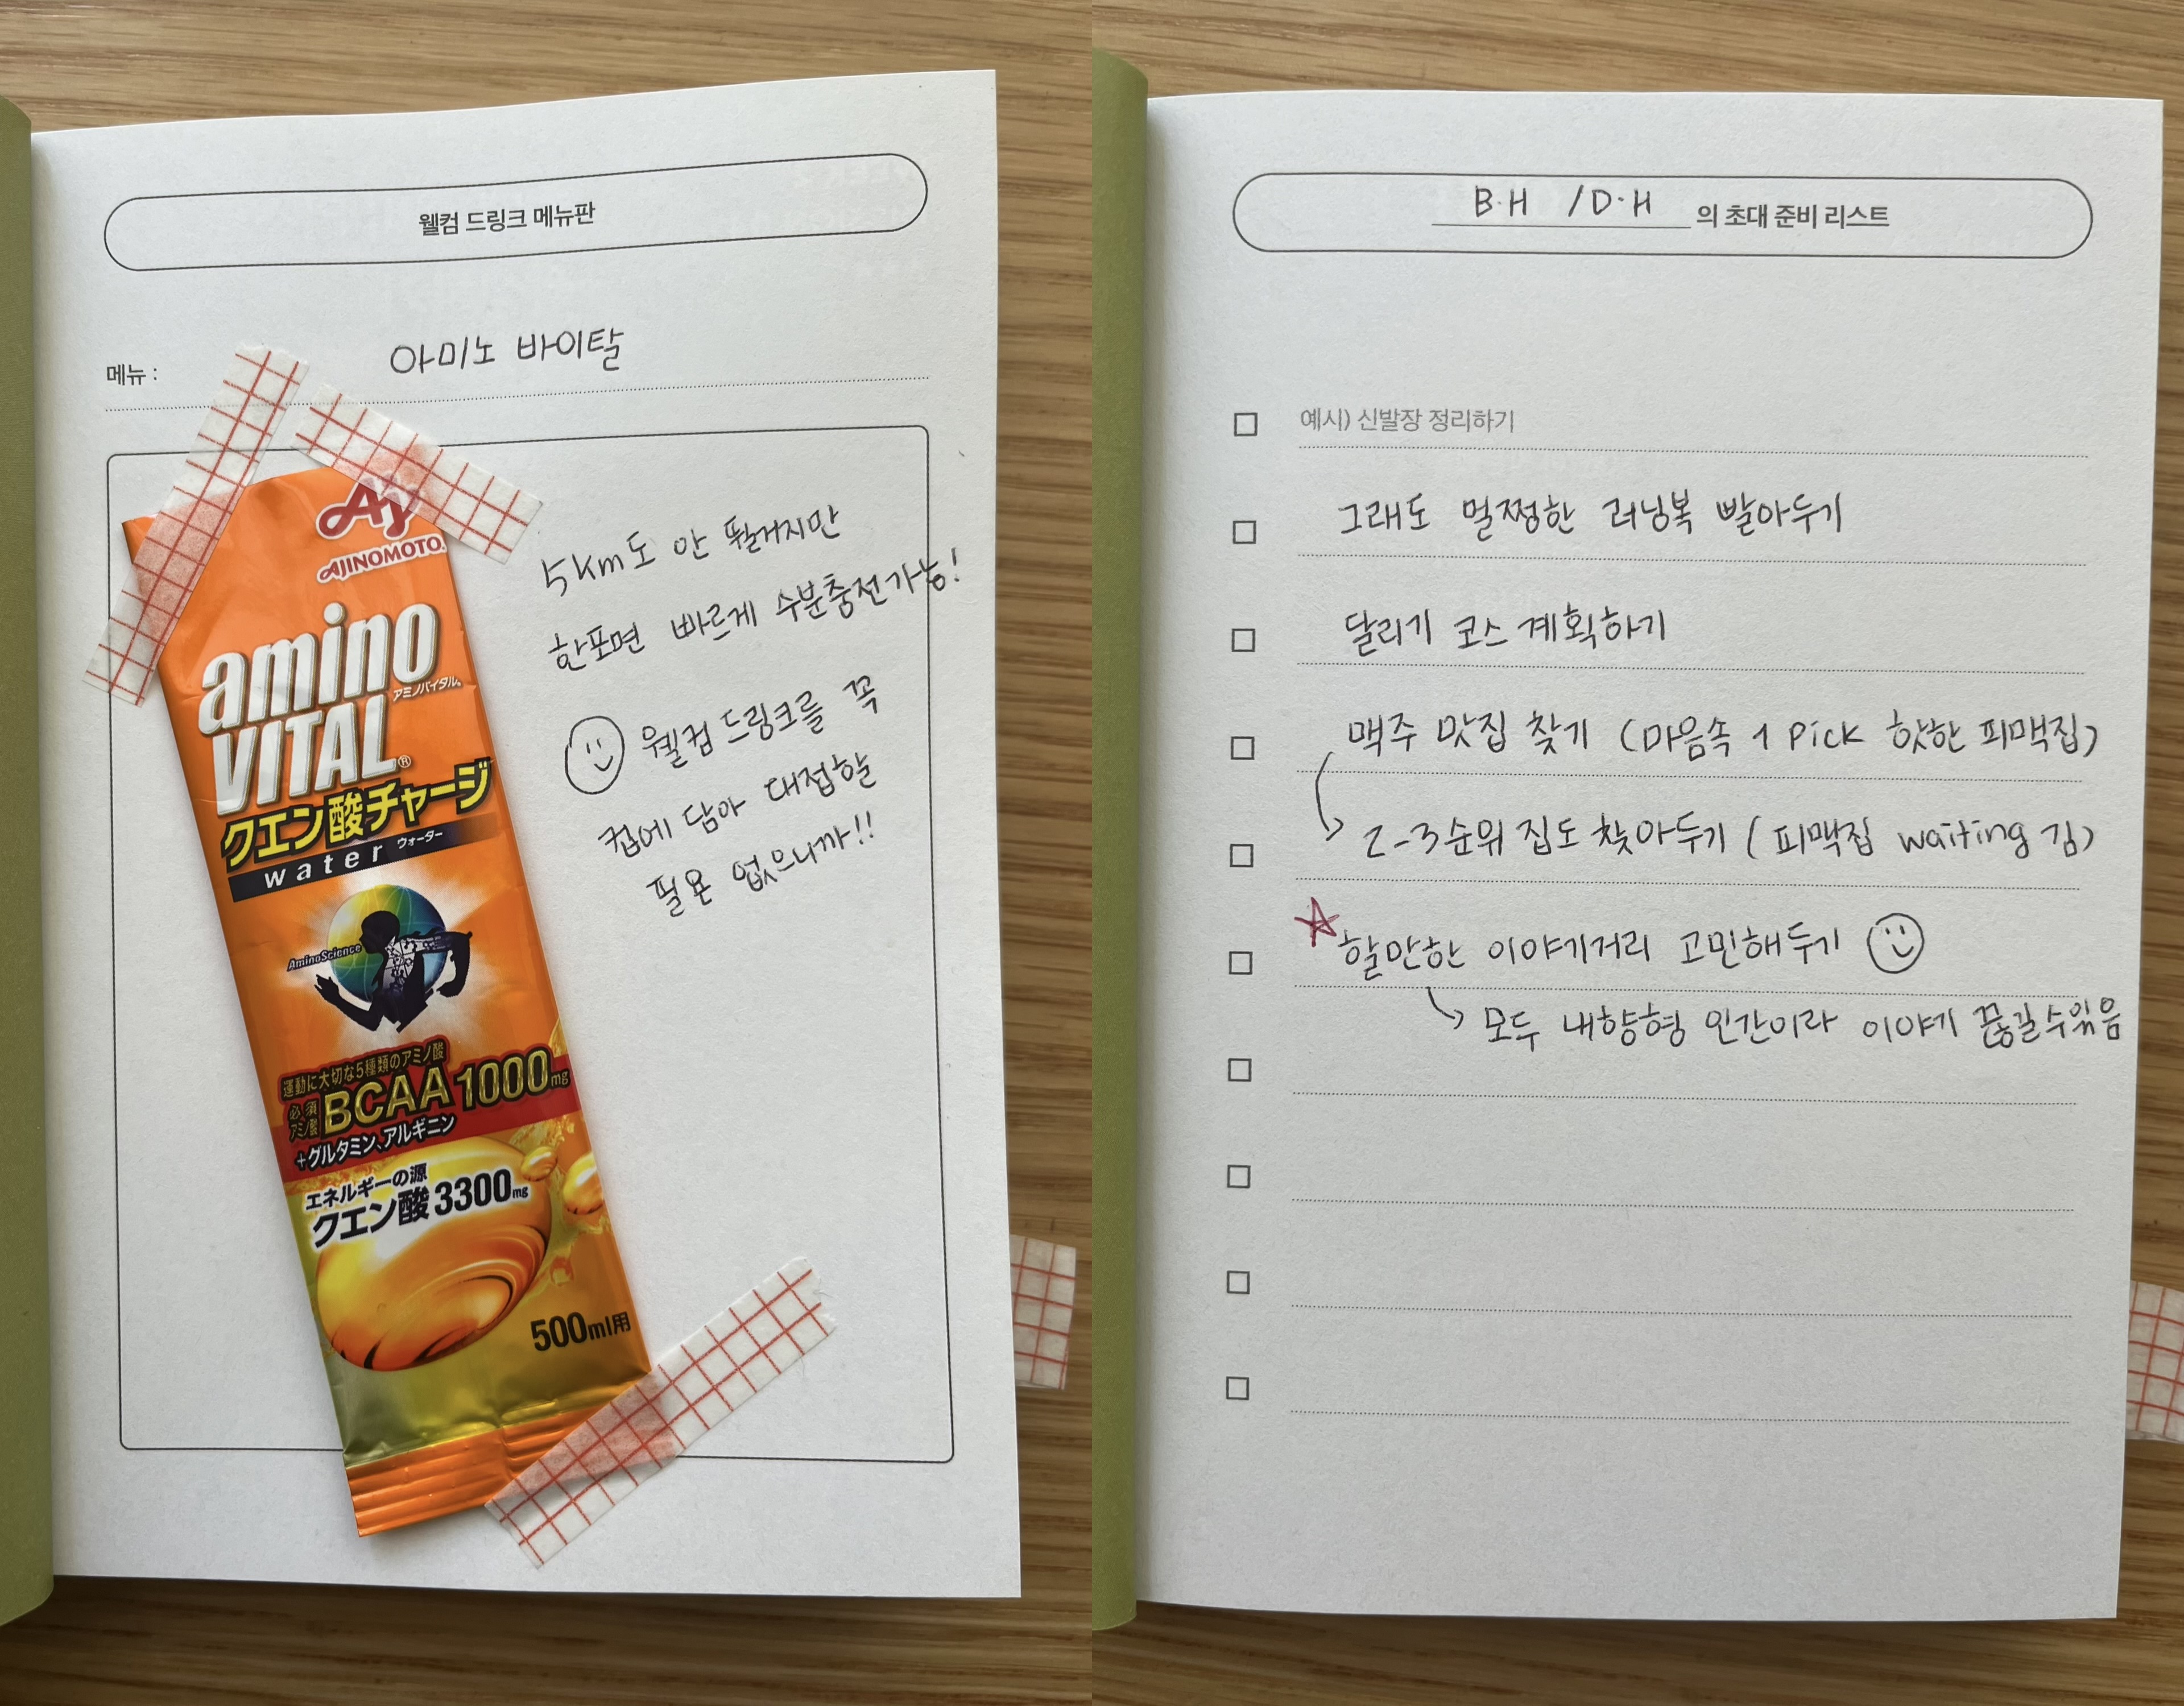 웰컴 드링크 메뉴판
메뉴 :
아미노 바이탈
AJINOMOTO
amino
VITAL®
アミノバイタル
クエン酸チャージ
water ウォーター
AminoScience
運動に大切な5種類のアミノ酸
必須アミノ酸 BCAA 1000mg
+グルタミン、アルギニン
エネルギーの源
クエン酸3300mg
500ml用
5km도 안 뛸거지만
한포면 빠르게 수분충전가능!
웰컴 드링크를 꼭
컵에 담아 대접할
필욘 없으니까!!
B·H / D·H 의 초대 준비 리스트
예시) 신발장 정리하기
그래도 멀쩡한 러닝복 빨아두기
달리기 코스 계획하기
맥주 맛집 찾기 (마음속 1 pick 핫한 피맥집)
2-3순위 집도 찾아두기 (피맥집 waiting 김)
할만한 이야기거리 고민해두기
모두 내향형 인간이라 이야기 끊길수있음